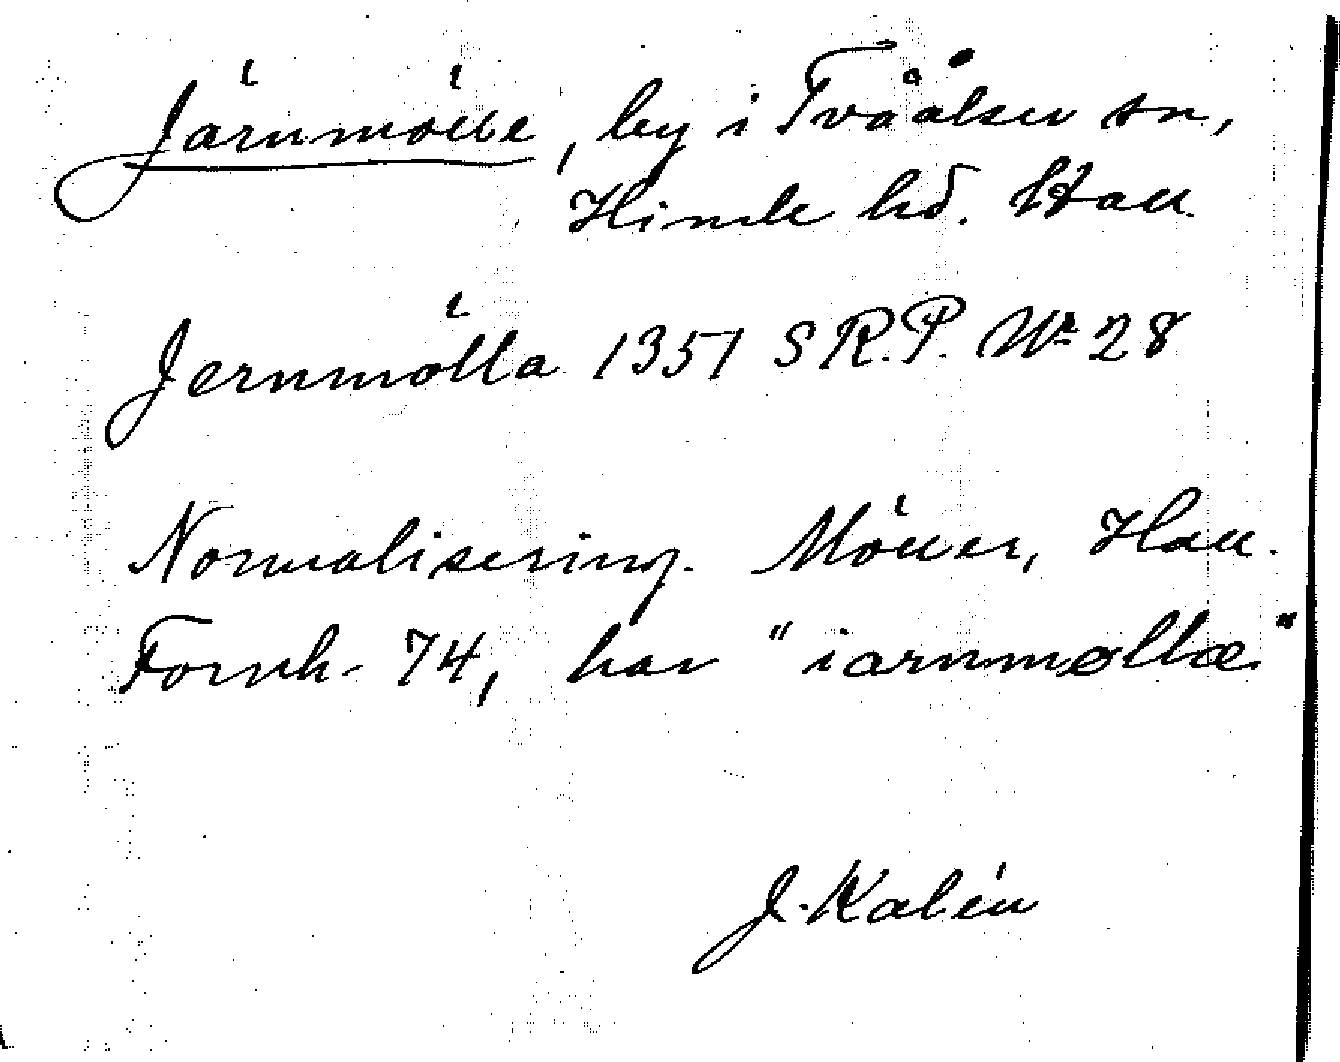 Järnmölle, by i Tvååker sn,
Himle hd. Hall.
Jernmölla 1351 S R.P. Nr 28
Normalisering. Möller, Hall.
Fornh. 74, har "iarnmøllæ"
J. Kalén